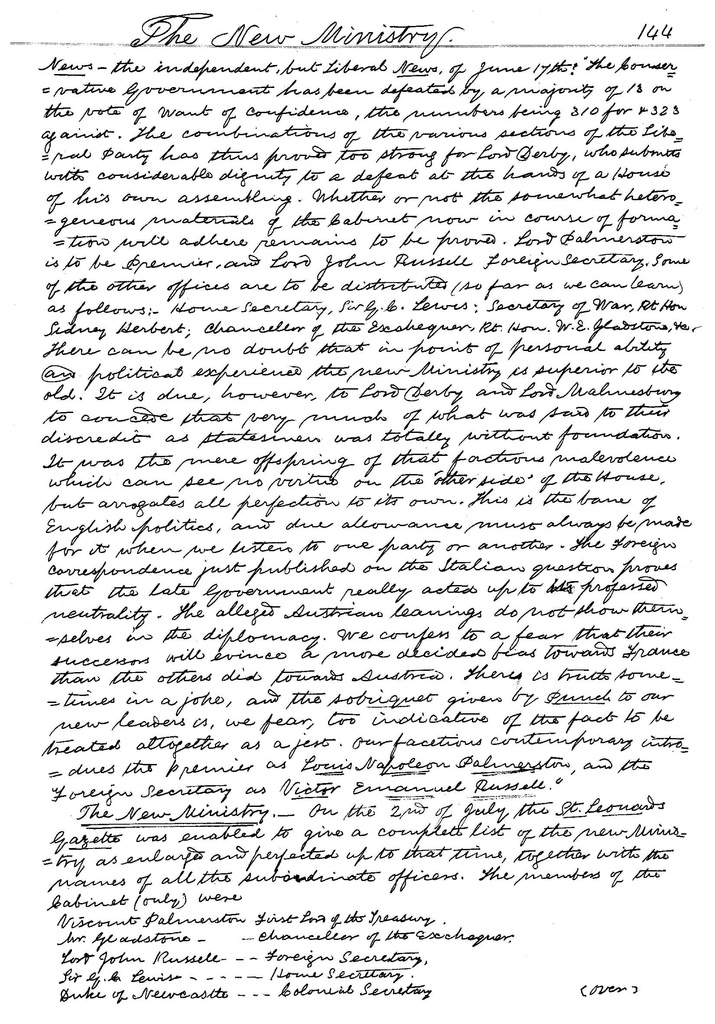 The New Ministry. 144
News – the independent, but Liberal News, of June 17th: "The Conser-
=vative Government has been defeated by a majority of 13 on
the vote of Want of Confidence, the numbers being 310 for & 323
against. The combinations of the various sections of the Libe-
=ral Party has thus proved too strong for Lord Derby, who submits
with considerable dignity to a defeat at the hands of a House
of his own assembling. Whether or not the somewhat hetero-
=geneous materials of the Cabinet now in course of forma-
=tion will adhere remains to be proved. Lord Palmerston
is to be Premier, and Lord John Russell Foreign Secretary. Some
of the other offices are to be distributed (so far as we can learn)
as follows:- Home Secretary, Sir G. C. Lewis; Secretary of War, Rt Hon
Sidney Herbert; Chancellor of the Exchequer, Rt. Hon. W. E. Gladstone, &c.
There can be no doubt that in point of personal ability
an political experience the new Ministry is superior to the
old. It is due, however, to Lord Derby and Lord Malmesbury
to concede that very much of what was said to their
discredit as statesmen was totally without foundation.
It was the mere offspring of that factious malevolence
which can see no virtue on the "other side" of the House,
but arrogates all perfection to its own. This is the bane of
English politics, and due allowance must always be made
for it when we listen to one party or another. The Foreign
correspondence just published on the Italian question proves
that the late Government really acted up to its professed
neutrality. The alleged Austrian leanings do not show them-
=selves in the diplomacy. We confess to a fear that their
successors will evince a more decided bias towards France
than the others did towards Austria. There is truth some-
=times in a joke, and the sobriquet given by Punch to our
new leaders is, we fear, too indicative of the fact to be
treated altogether as a jest. Our facetious contemporary intro-
=dues the Premier as Louis Napoleon Palmerston, and the
Foreign Secretary as Victor Emanuel Russell."
The New Ministry. – On the 2nd of July the St. Leonards
Gazette was enabled to give a complete list of the new Minis-
=try as enlarged and perfected up to that time, together with the
names of all the subordinate officers. The members of the
Cabinet (only) were
Viscount Palmerston First Lord of the Treasury.
Mr. Gladstone – – Chancellor of the Exchequer.
Lord John Russell – – Foreign Secretary,
Sir G. C. Lewis – – – – – Home Secretary.
Duke of Newcastle – – – Colonial Secretary (over)